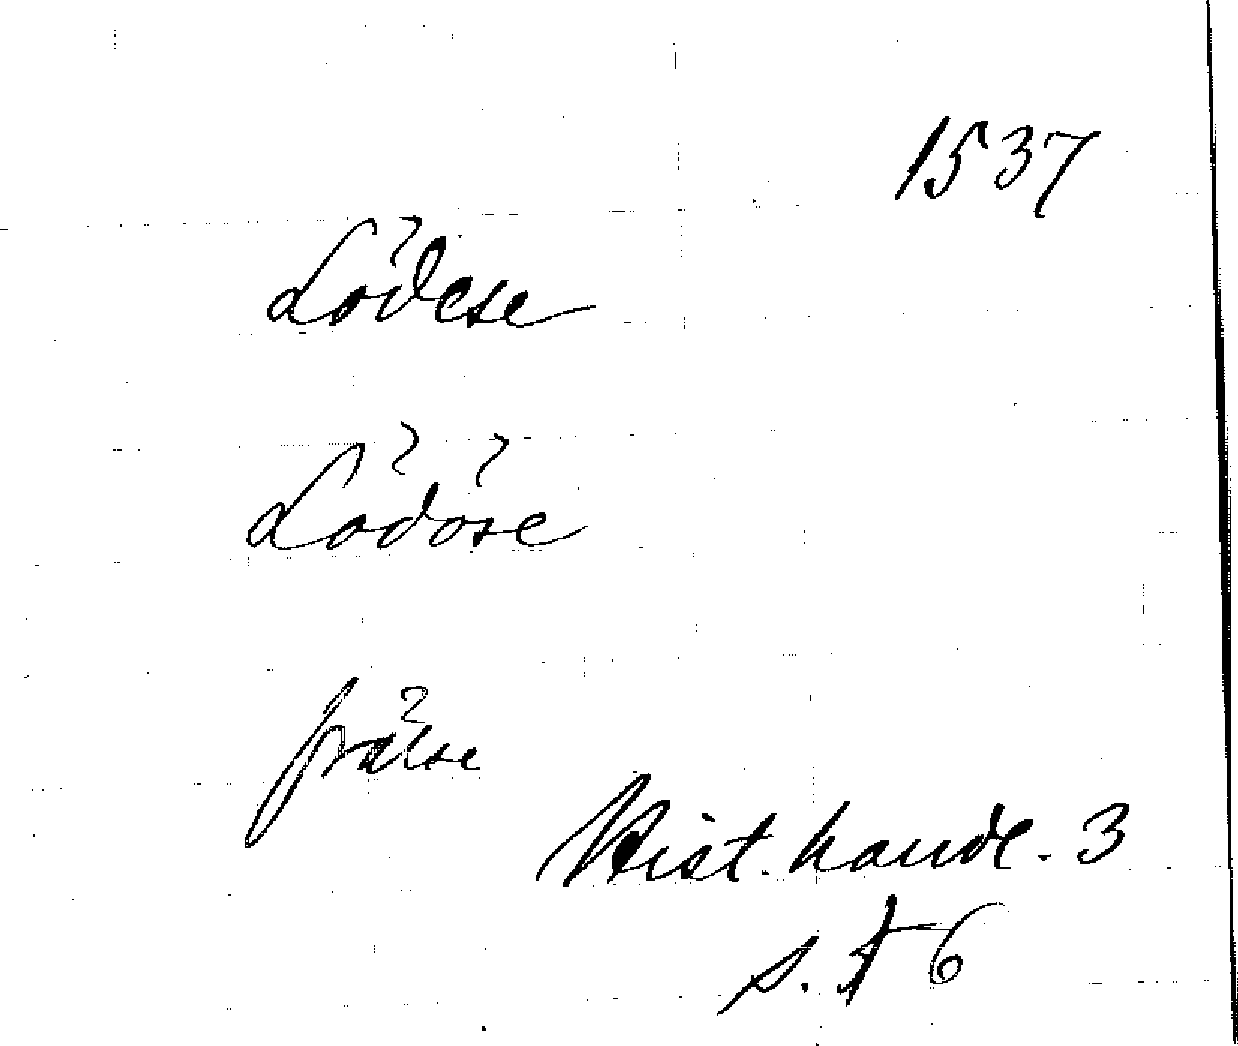 1537
Lödese
Lödöse
frälse
Hist. handl. 3
s. 56